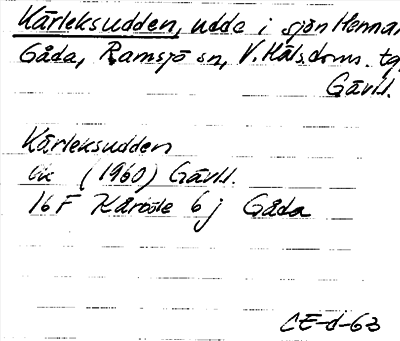 Kärleksudden, udde i sjön Hennan
Gåda, Ramsjö sn, V. Hälsdoms. tg
Gävll.
Kärleksudden
ek (1960) Gävll.
16 F Kårböle 6 j Gåda
CE-d-63